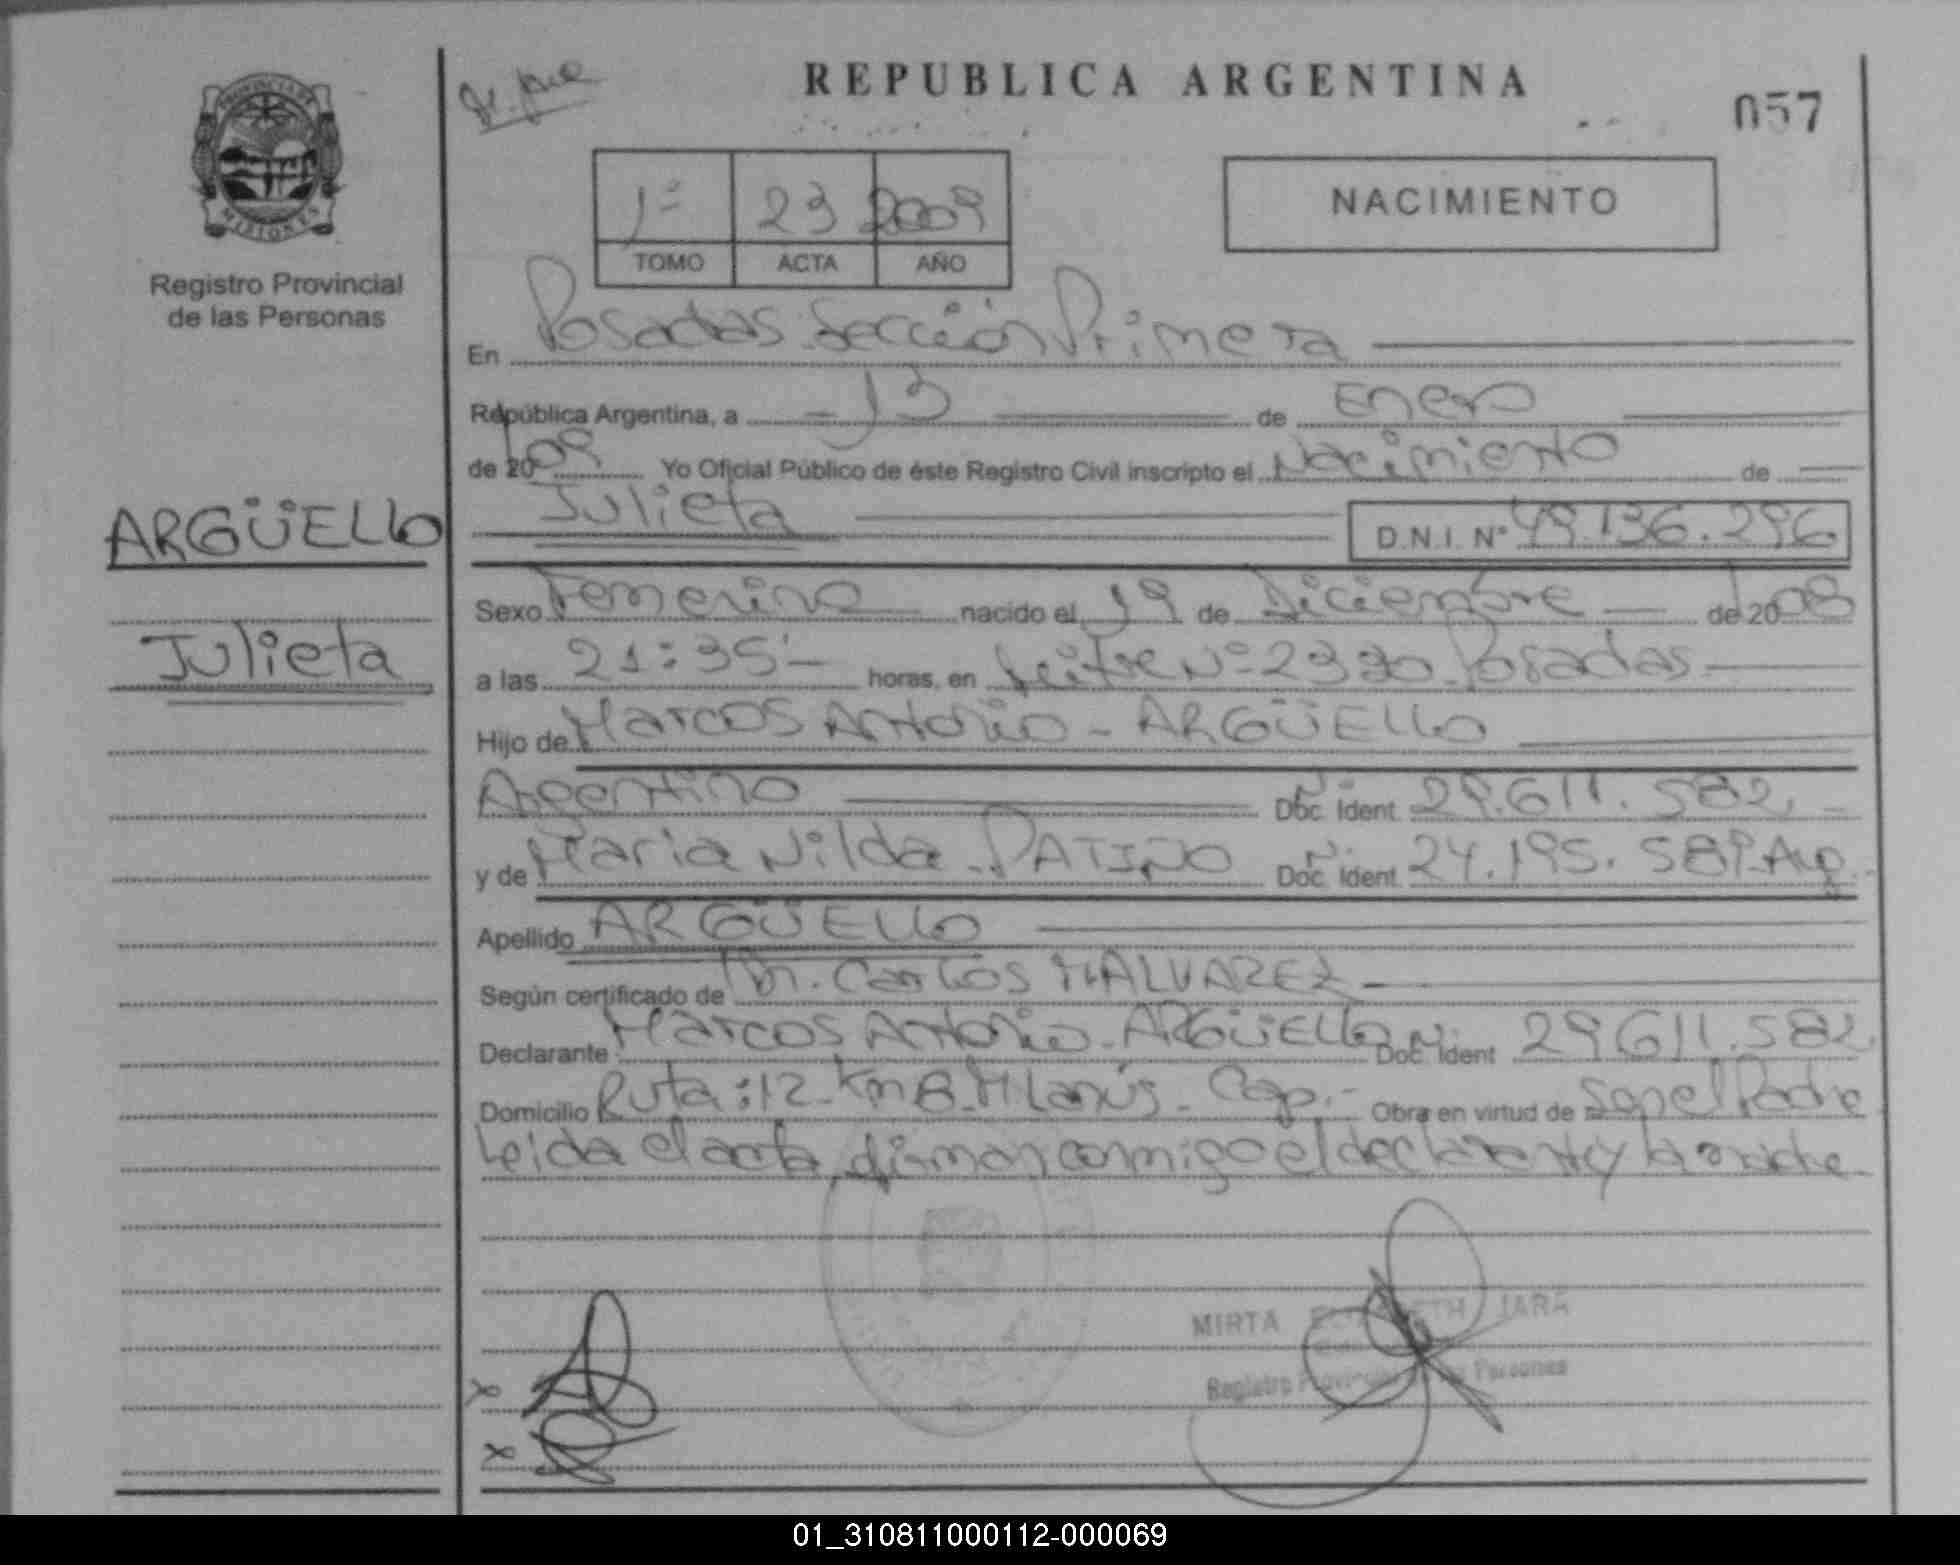 REPUBLICA ARGENTINA
057
PROVINCIA DE
MISIONES
Registro Provincial
de las Personas
1ª 23 2009
TOMO ACTA AÑO
NACIMIENTO
En Posadas Sección Primera
República Argentina, a 13 de Enero
de 2009 Yo Oficial Público de éste Registro Civil inscripto el Nacimiento de
Julieta D.N.I. N° 49.136.296
ARGÜELLO
Julieta
Sexo Femenino nacido el 19 de Diciembre de 2008
a las 21:35 horas, en N° 2390 Posadas
Hijo de Marcos Antonio - ARGÜELLO
Argentino Doc. Ident. 29.611.582
y de Maria Nilda - PATIÑO Doc. Ident. 24.195.589 Arg.
Apellido ARGÜELLO
Según certificado de Dr. Carlos M ALVAREZ
Declarante Marcos Antonio - ARGÜELLO Doc. Ident 29611.582
Domicilio Ruta: 12 - Km 8 - Cap. Obra en virtud de Ser el Padre
Leida el acta, firman conmigo el declarante y la madre
MIRTA ELIZABETH JARA
Registro Provincial de las Personas
x
x
01_310811000112-000069